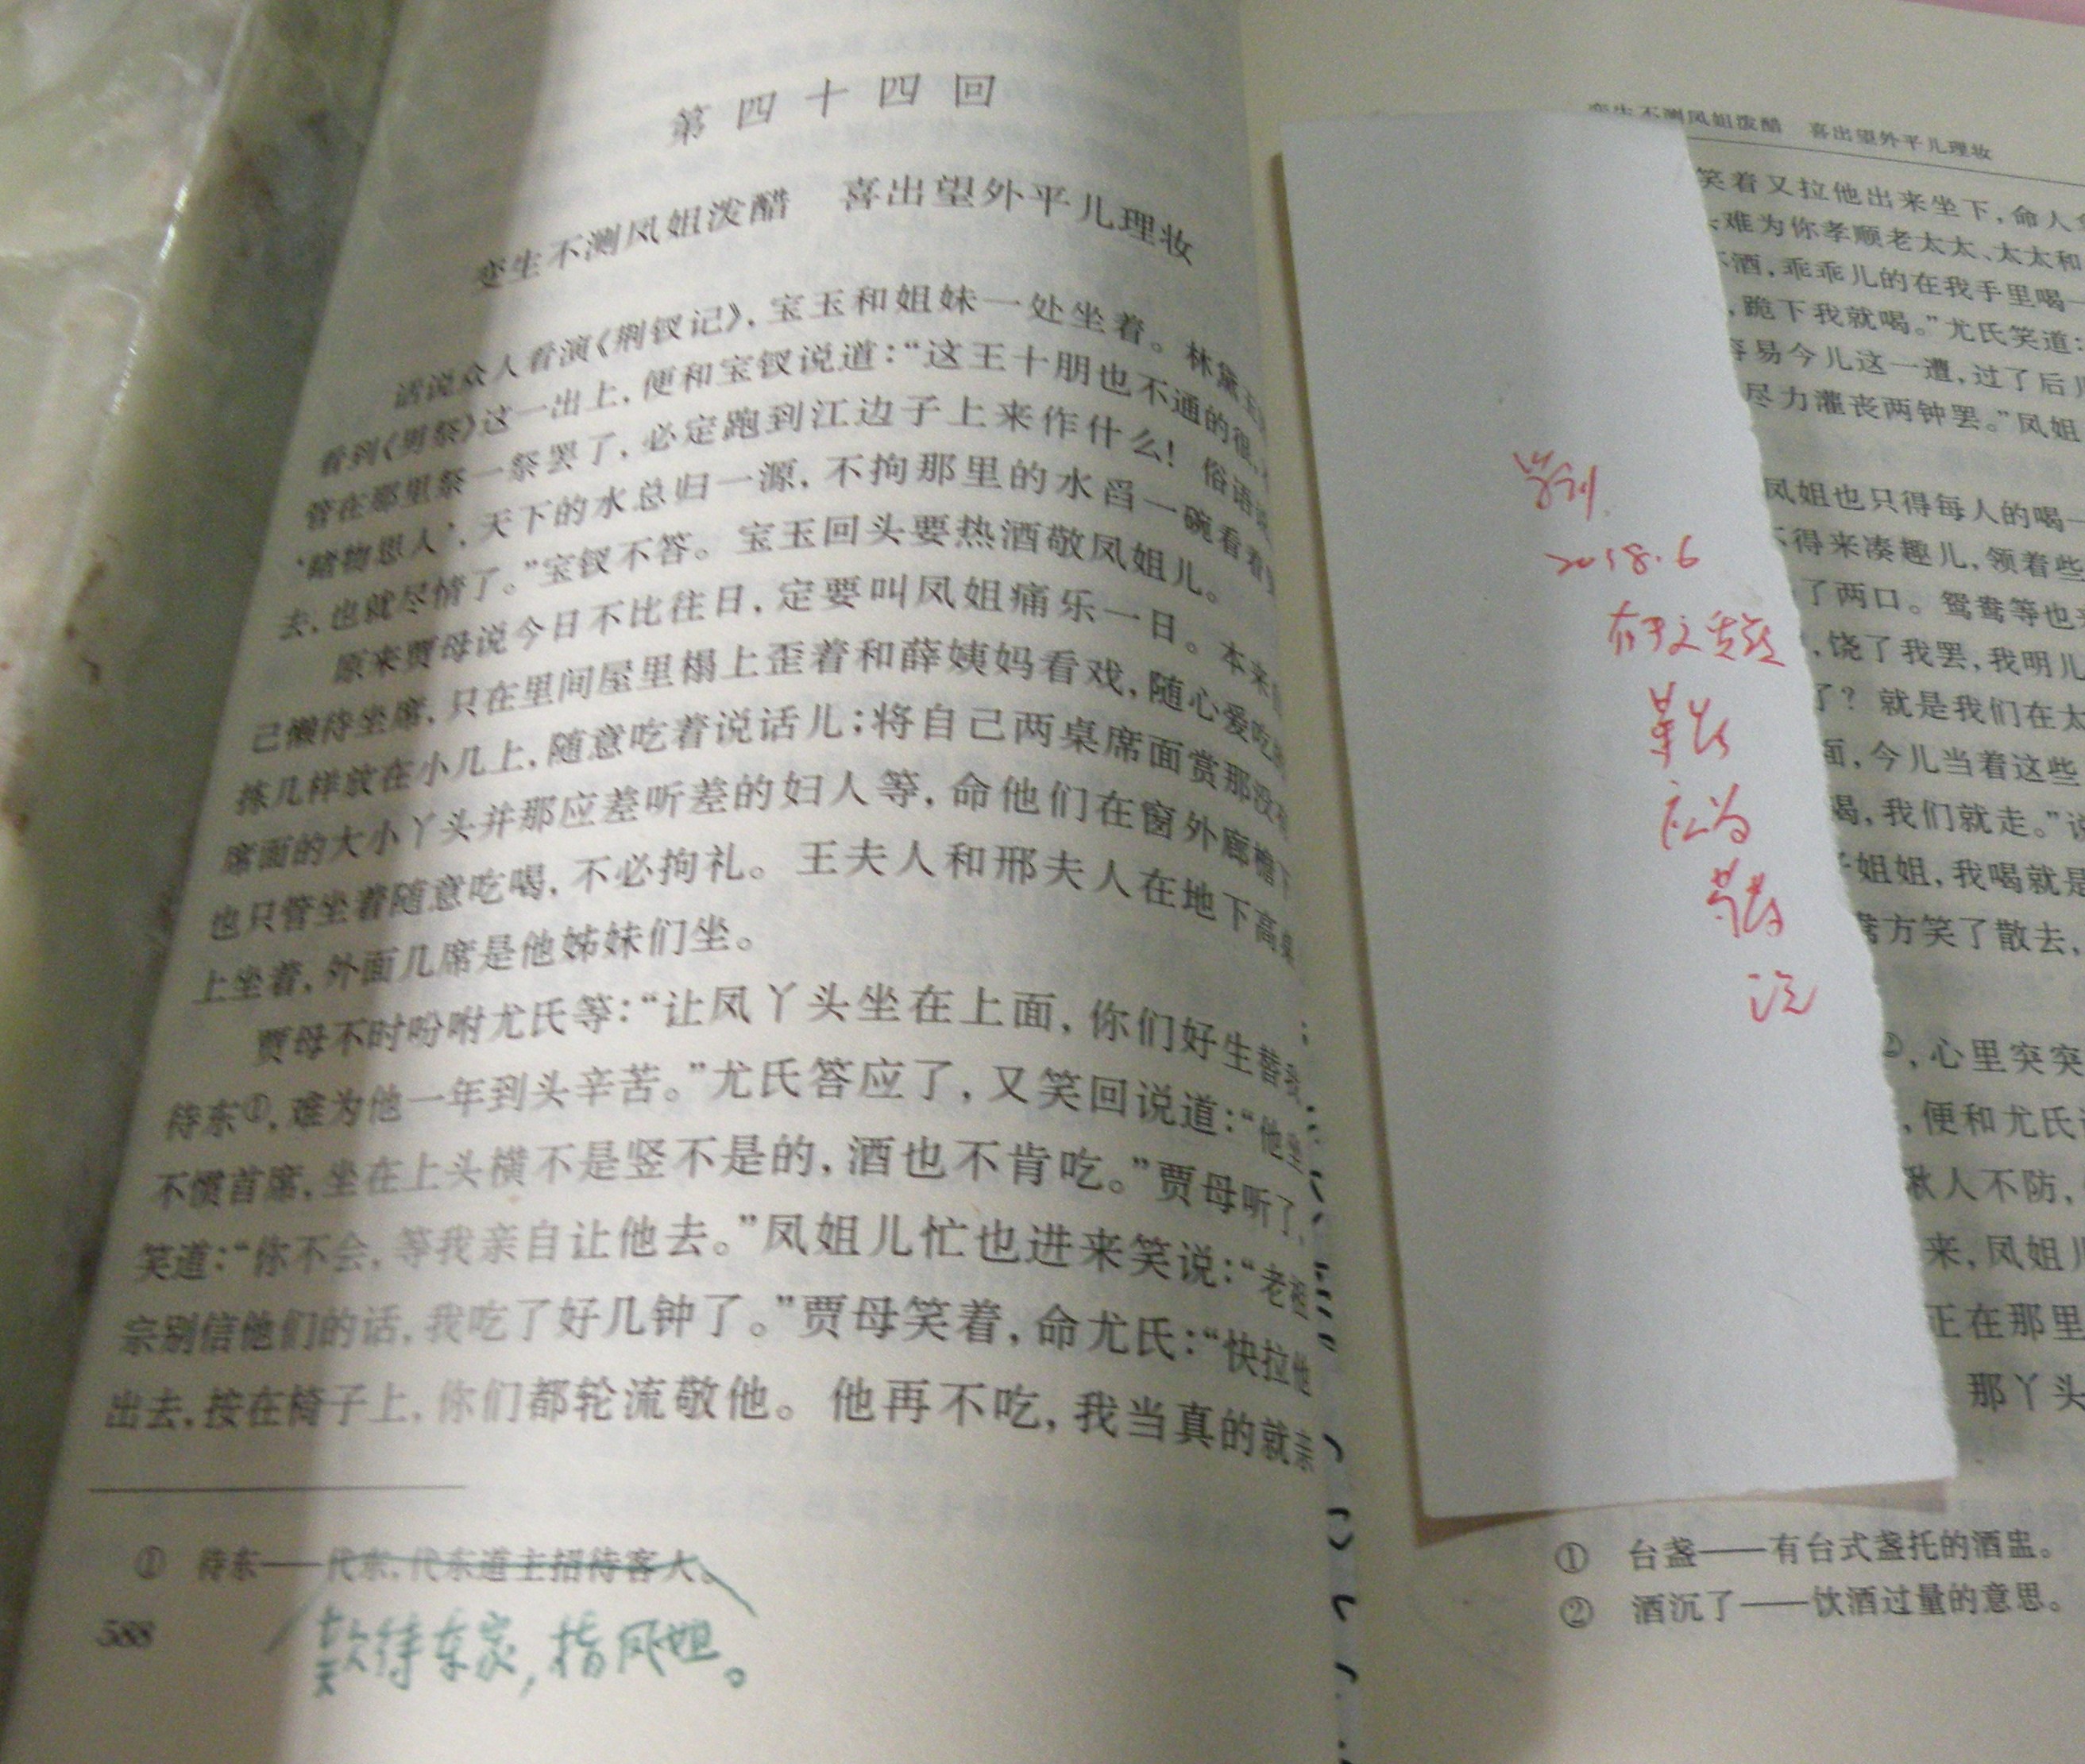 第四十四回
变生不测凤姐泼醋 喜出望外平儿理妆
话说众人看演《荆钗记》，宝玉和姐妹一处坐着。林黛玉
看到《男祭》这一出上，便和宝钗说道：“这王十朋也不通的很，
管在那里祭一祭罢了，必定跑到江边子上来作什么！俗语说
‘睹物思人’，天下的水总归一源，不拘那里的水舀一碗看着
去，也就尽情了。”宝钗不答。宝玉回头要热酒敬凤姐儿。
原来贾母说今日不比往日，定要叫凤姐痛乐一日。本来
己懒待坐席，只在里间屋里榻上歪着和薛姨妈看戏，随心爱吃的
拣几样放在小几上，随意吃着说话儿；将自己两桌席面赏那没有
席面的大小丫头并那应差听差的妇人等，命他们在窗外廊檐下
也只管坐着随意吃喝，不必拘礼。王夫人和邢夫人在地下高桌
上坐着，外面几席是他姊妹们坐。
贾母不时吩咐尤氏等：“让凤丫头坐在上面，你们好生替我
待东①，难为他一年到头辛苦。”尤氏答应了，又笑回说道：“他坐
不惯首席，坐在上头横不是竖不是的，酒也不肯吃。”贾母听了，
笑道：“你不会，等我亲自让他去。”凤姐儿忙也进来笑说：“老祖
宗别信他们的话，我吃了好几钟了。”贾母笑着，命尤氏：“快拉他
出去，按在椅子上，你们都轮流敬他。他再不吃，我当真的就亲
① 待东——代东，代东道主招待客人。
款待东家，指凤姐。
588
变生不测凤姐泼醋 喜出望外平儿理妆
笑着又拉他出来坐下，命人
难为你孝顺老太太、太太和
酒，乖乖儿的在我手里喝一
，跪下我就喝。”尤氏笑道：
容易今儿这一遭，过了后儿
尽力灌丧两钟罢。”凤姐
凤姐也只得每人的喝一
不得来凑趣儿，领着些
了两口。鸳鸯等也
，饶了我罢，我明儿
了？就是我们在太
面，今儿当着这些
喝，我们就走。”说
姐姐，我喝就是
鸯方笑了散去，
②，心里突突
，便和尤氏
瞅人不防，
来，凤姐儿
正在那里
那丫头
2018.6
应为
① 台盏——有台式盏托的酒盅。
② 酒沉了——饮酒过量的意思。